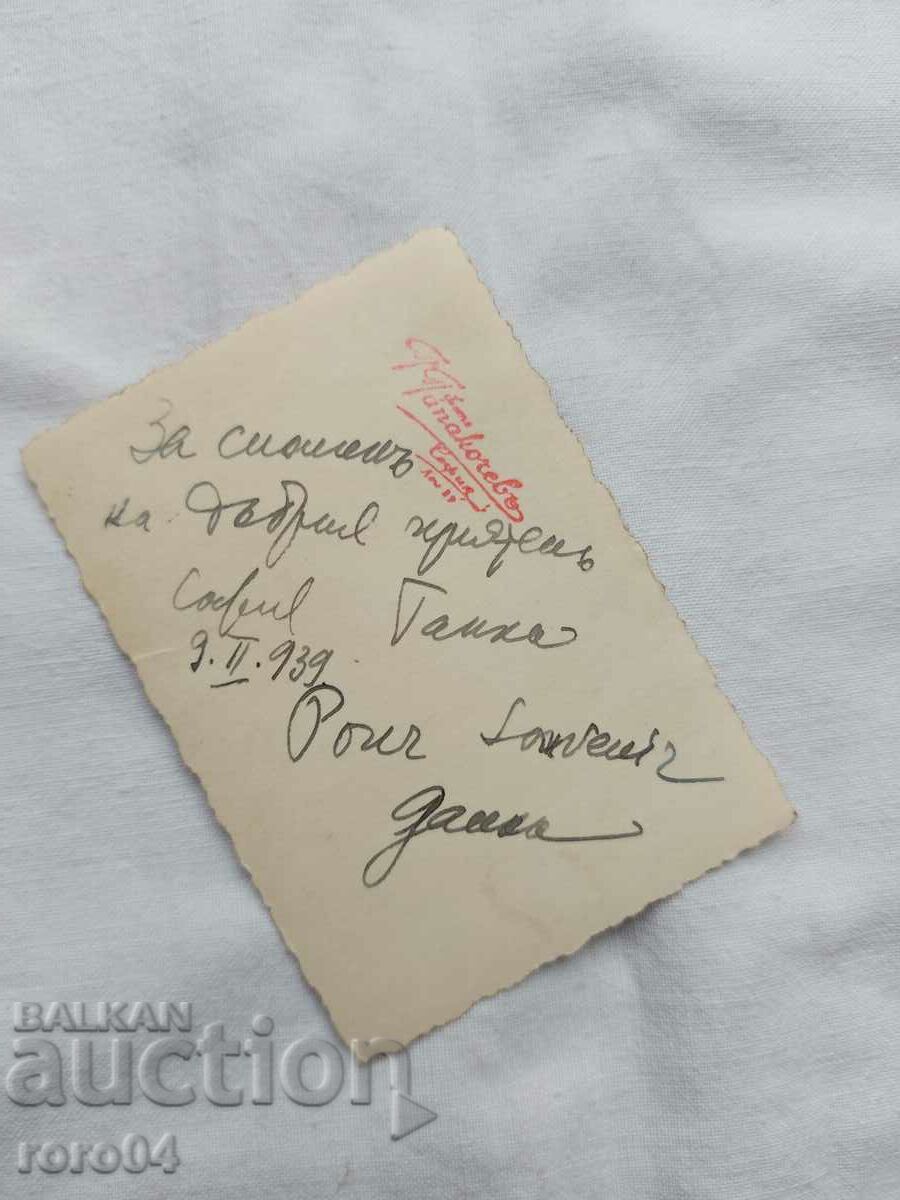 За споменъ
на добрия приятель
София Ганка
9.II.939
Pour Souvenir
Ганка
фото
София
BALKAN
auction
roro04